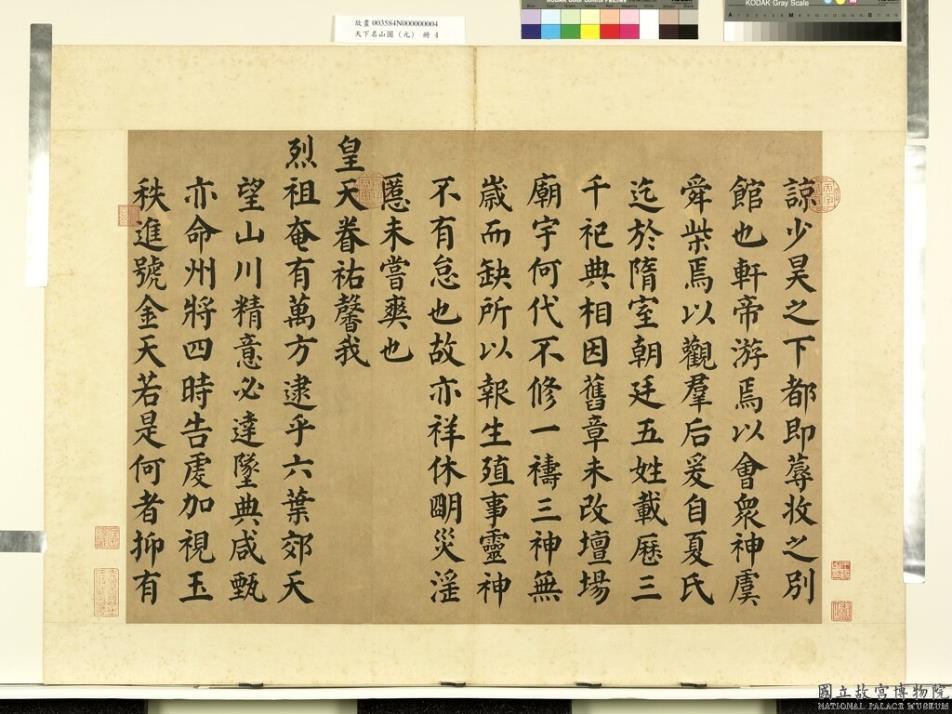 故畫 003584N000000004
天下名山圖（元） 冊 4
KODAK Gray Scale
諒少昊之下都即蓐收之別
館也軒帝游焉以會衆神虞
舜柴焉以觀羣后爰自夏氏
迄於隋室朝廷五姓載歷三
千祀典相因舊章未改壇場
廟宇何代不修一禱三神無
歲而缺所以報生殖事靈神
不有怠也故亦祥休明災淫
慝未嘗爽也
皇天眷祐馨我
烈祖奄有萬方逮乎六葉郊天
望山川精意必達墜典咸甄
亦命州將四時告虔加視玉
秩進號金天若是何者抑有
國立故宮博物院
NATIONAL PALACE MUSEUM